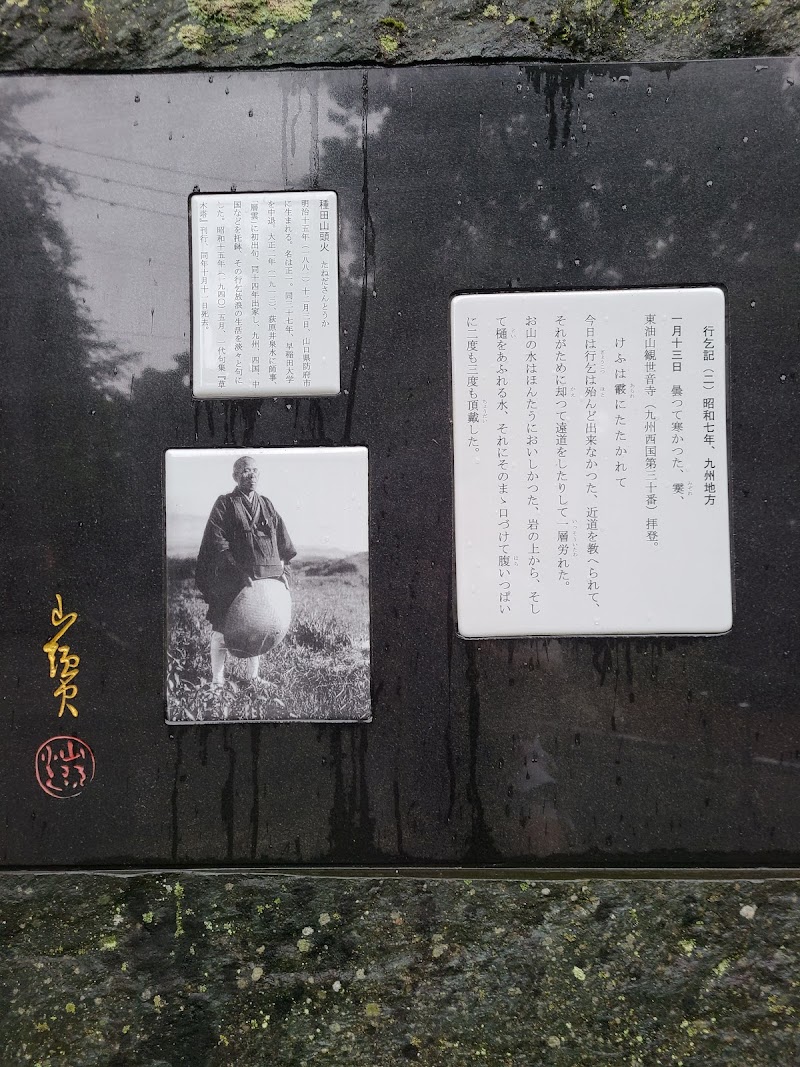 行乞記（二）昭和七年、九州地方
一月十三日　曇つて寒かつた、霙、
みぞれ
東油山観世音寺（九州西国第三十番）拝登。
けふは霰にたたかれて
あられ
今日は行乞は殆んど出来なかつた、近道を教へられて、
ぎょうこつ
ほと
それがために却つて遠道をしたりして一層労れた。
かへ
お山の水はほんたうにおいしかつた、岩の上から、そし
て樋をあふれる水、それにそのまゝ口づけて腹いつぱい
とい
はら
に二度も三度も頂戴した。
ちょうだい
種田山頭火　たねださんとうか
明治十五年（一八八二）十二月三日、山口県防府市
に生まれる。名は正一。同三十七年、早稲田大学
を中退。大正二年（一九一三）、荻原井泉水に師事、
『層雲』に初出句、同十四年出家し、九州、四国、中
国などを托鉢、その行乞放浪の生活を淡々と句に
した。昭和十五年（一九四〇）五月、一代句集『草
木塔』刊行、同年十月十一日死去。
山頭火